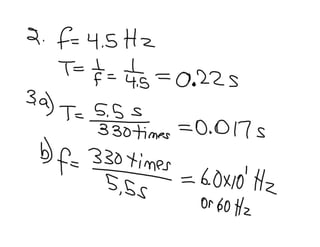 2. f = 4.5 Hz
T = 1/f = 1/4.5 = 0.22 s
3a) T = 5.5 s / 330 times = 0.017 s
b) f = 330 times / 5,5s = 6.0x10¹ Hz
or 60 Hz